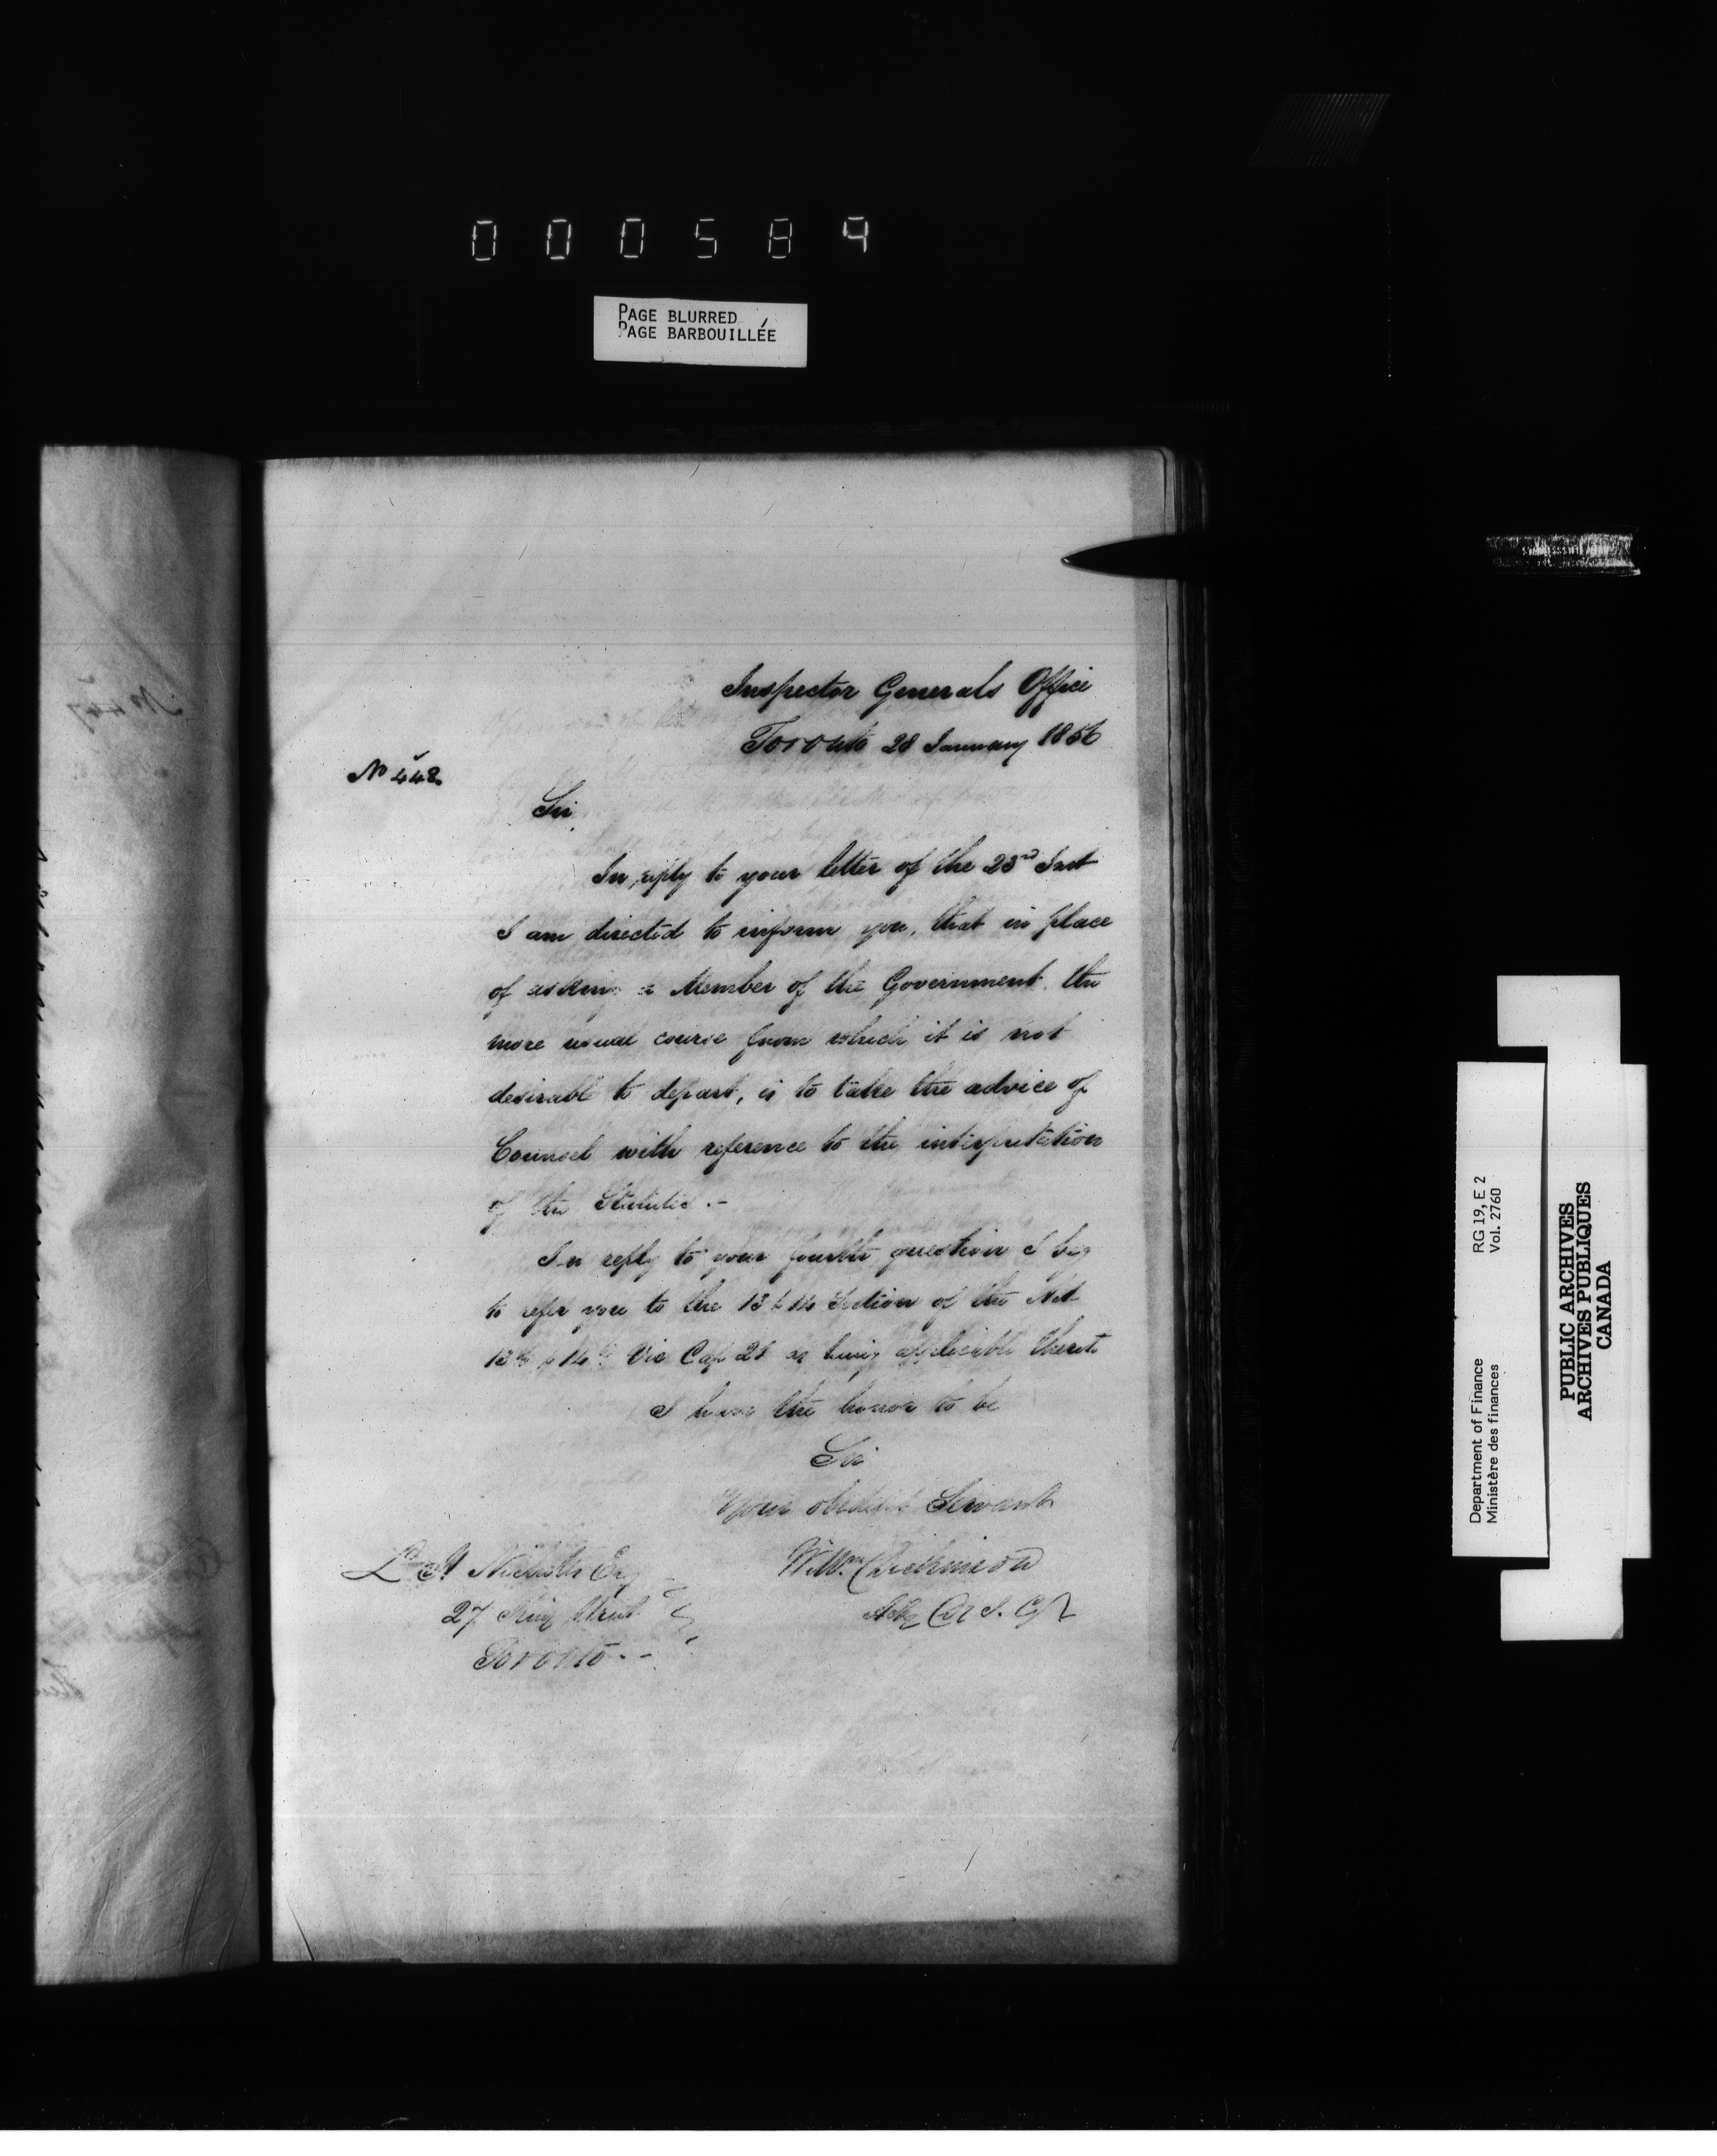 000584
PAGE BLURRED
PAGE BARBOUILLÉE
Inspector Generals Office
Toronto 28 January 1856
No 448
Sir
In reply to your letter of the 23rd Inst
I am directed to inform you, that in place
of asking a Member of the Government the
more usual course from which it is not
desirable to depart, is to take the advice of
Counsel with reference to the interpretation
of the Statutes.-
In reply to your fourth question I beg
to refer you to the 13 & 14 Section of the Act
13th & 14th Vic Cap 21 as being applicable thereto
I have the honor to be
Sir
Your obedient Servant
Wm Dickinson
Actg D I. G
Esq
27 King Street
Toronto --
Department of Finance RG 19, E 2
Ministère des finances Vol. 2760
PUBLIC ARCHIVES
ARCHIVES PUBLIQUES
CANADA